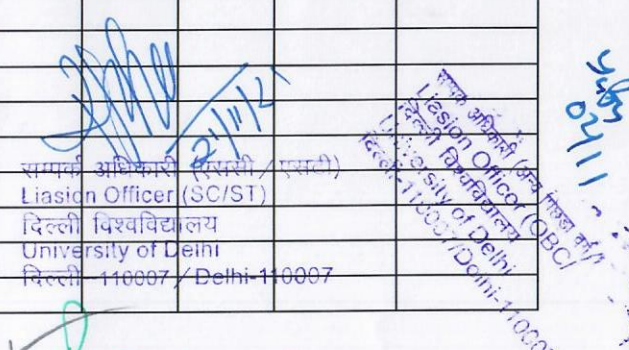 2/11/21
सम्पर्क अधिकारी (एससी / एसटी)
Liasion Officer (SC/ST)
दिल्ली विश्वविद्यालय
University of Delhi
दिल्ली-110007 / Delhi-110007
02/11
सम्पर्क अधिकारी (अन्य पिछडा वर्ग)
Liasion Officer (OBC)
दिल्ली विश्वविद्यालय
University of Delhi
दिल्ली-110007/Delhi-110007